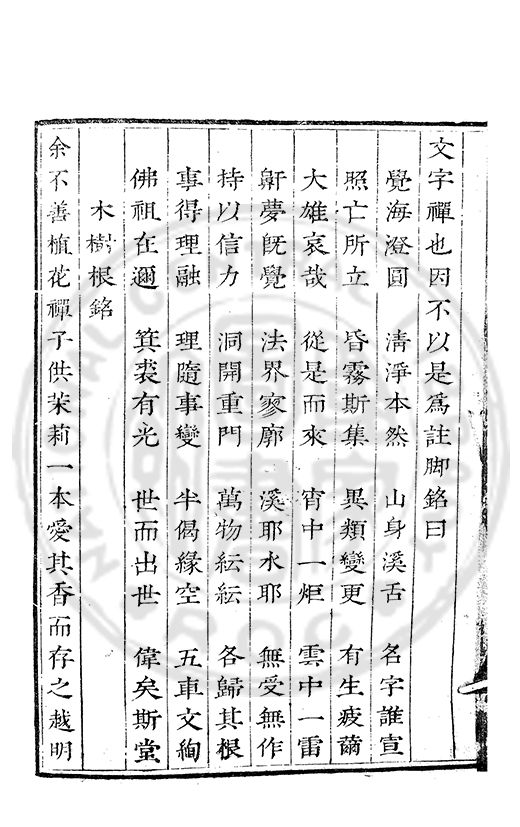 文字禪也因不以是爲註脚銘曰
覺海澄圓 淸淨本然 山身溪舌 名字誰宣
照亡所立 昏霧斯集 異類變更 有生疲薾
大雄哀哉 從是而來 宵中一炬 雲中一雷
鼾夢旣覺 法界寥廓 溪耶水耶 無受無作
持以信力 洞開重門 萬物紜紜 各歸其根
事得理融 理隨事變 半偈緣空 五車文絢
佛祖在邇 箕裘有光 世而出世 偉矣斯堂
木樹根銘
余不善植花禪子供茉莉一本愛其香而存之越明